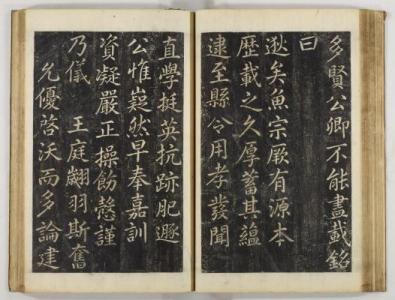 多賢公卿不能盡載銘
曰
逖矣魚宗厥有源本
歷載之久厚蓄其蘊
逮至縣令用孝發聞
直學挺英抗跡肥遯
公惟嶷然早奉嘉訓
資凝嚴正操飭慤謹
乃儀王庭翽羽斯奮
允優啓沃而多論建